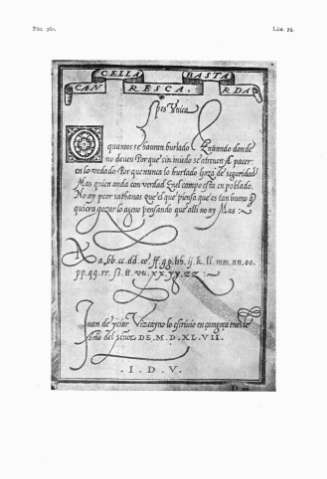 Pág. 360.
Lám. 25.
CANCELLARESCA BASTARDA
Spes Vnica
O quantos se hauran burlado Entrando donde
no deuen Porque sin miedo se atreuen A pacer
en lo vedado Por que nunca lo hurtado Goza de seguridad
Mas quien anda con verdad En el campo esta en poblado.
No ay peor sathanas que el que piensa que es tan bueno
quiere gozar lo ageno pensando que alli no ay Mas
A a. bb. cc. dd. ee. ff. gg. hh. ij. k. ll. mm. nn. oo.
pp. qq. rr. st. tt. vu. xx. yy. zz
Juan de yciar Vizcayno lo escriuio en çaragoça
Año del señor DE M. D. XL. VII.
. I . D . V .